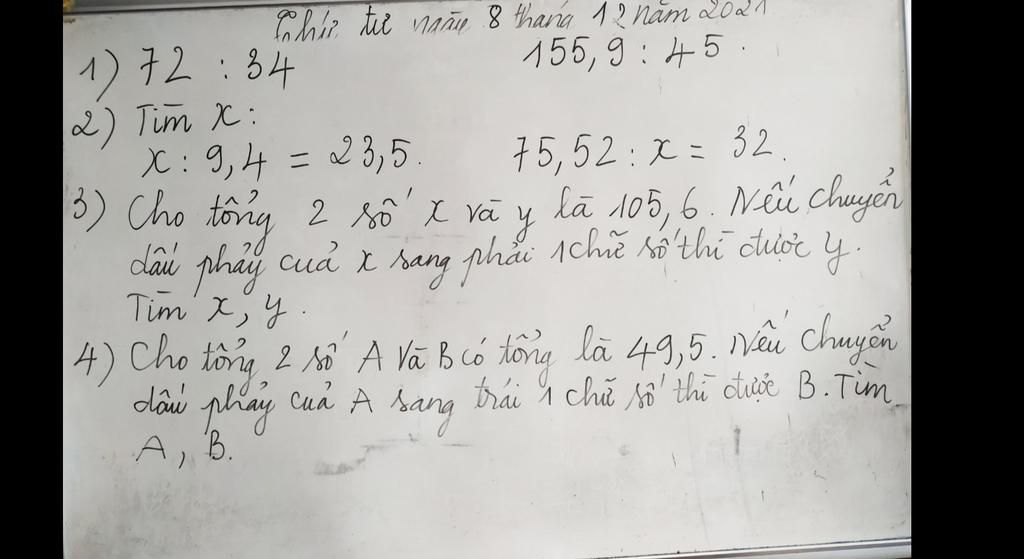 Thứ tư ngày 8 tháng 12 năm 2021
1) 72 : 34 155,9 : 45
2) Tìm x :
x : 9,4 = 23,5. 75,52 : x = 32.
3) Cho tổng 2 số x và y là 105,6. Nếu chuyển
dấu phảy cuả x sang phải 1 chữ số thì được y.
Tìm x, y.
4) Cho tổng 2 số A và B có tổng là 49,5. Nếu chuyển
dấu phảy cuả A sang trái 1 chữ số thì được B. Tìm
A, B.